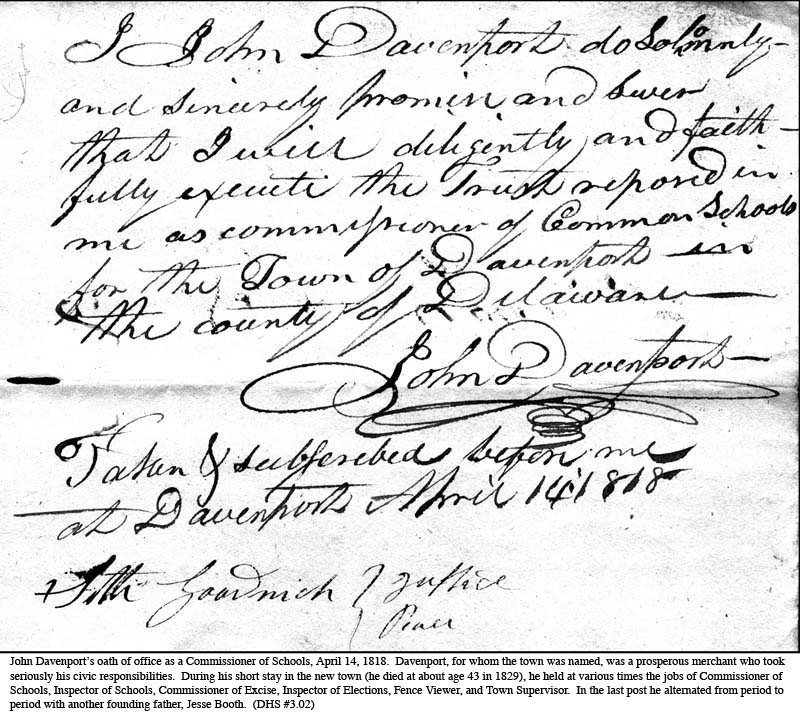 I John Davenport do Solomnly
and sincerely promise and swer
that I will diligently and faith-
fully execute the Trust reposed in
me as commissioner of Common Schools
for the Town of Davenport in
the county of Delaware
John Davenport
Taken & subscribed before me
at Davenport April 14 1818
Seth Goodrich } Justice
Peace
John Davenport’s oath of office as a Commissioner of Schools, April 14, 1818.  Davenport, for whom the town was named, was a prosperous merchant who took
seriously his civic responsibilities.  During his short stay in the new town (he died at about age 43 in 1829), he held at various times the jobs of Commissioner of
Schools, Inspector of Schools, Commissioner of Excise, Inspector of Elections, Fence Viewer, and Town Supervisor.  In the last post he alternated from period to
period with another founding father, Jesse Booth.  (DHS #3.02)